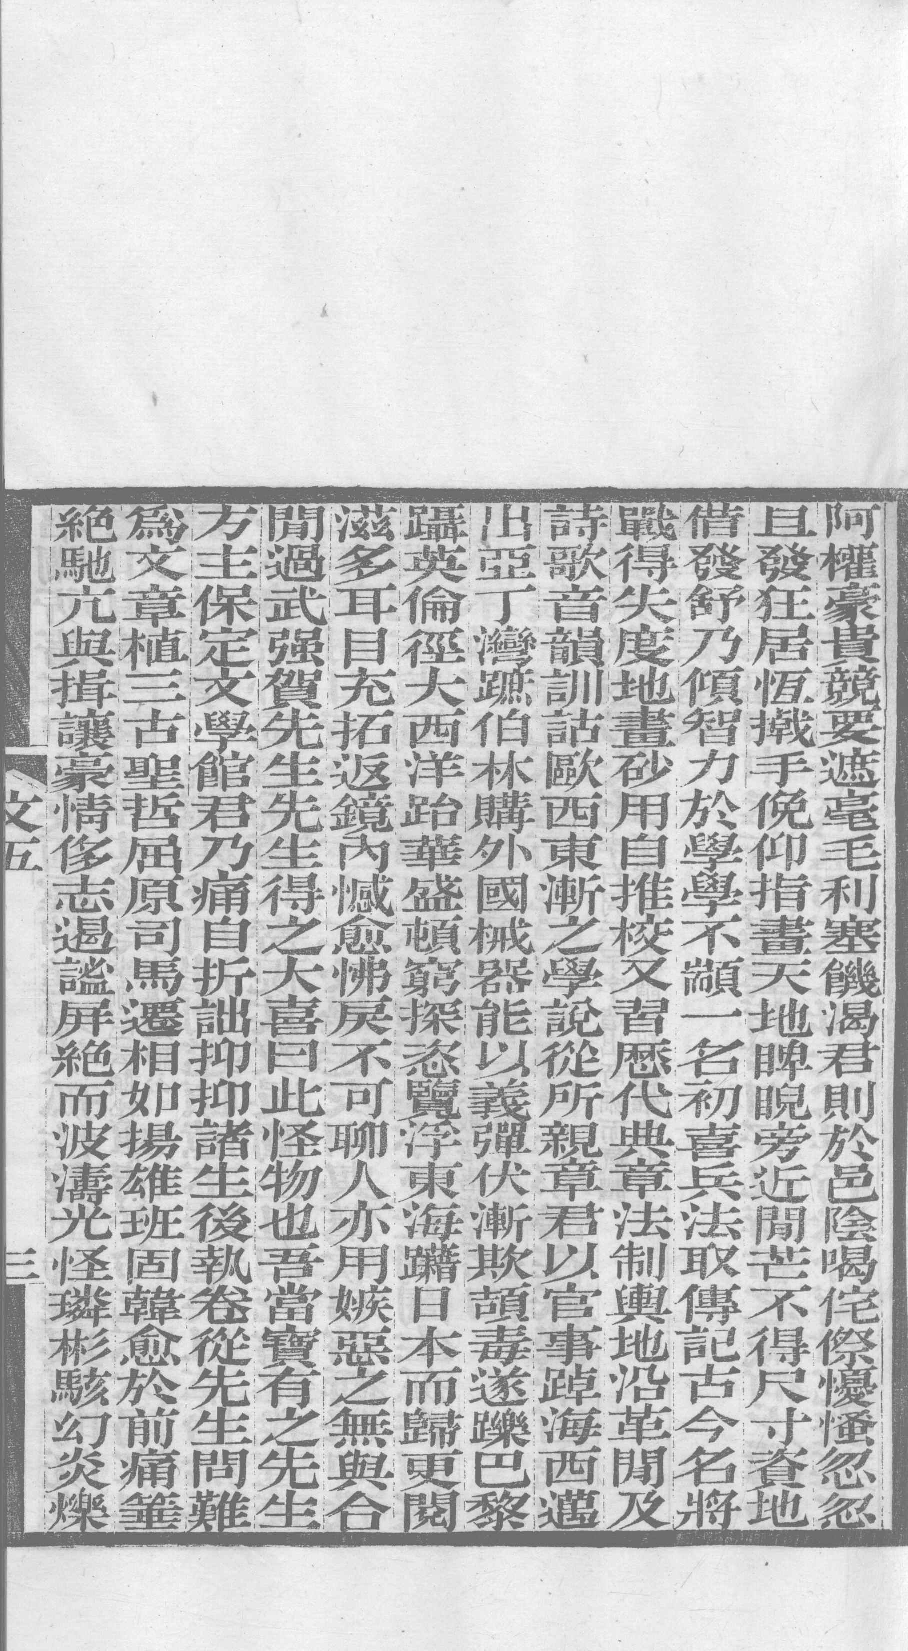 阿權豪貴競要遮毫毛利塞饑渴君則於邑陰喝侘傺懮慅忽忽
且發狂居恆㦸手俛仰指畫天地睥睨旁近閒芒不得尺寸資地
借發舒乃傾智力於學學不顓一名初喜兵法取傳記古今名將
戰得失度地畫砂用自推校又習歷代典章法制輿地沿革閒及
詩歌音韻訓詁歐西東漸之學說從所親章君以官事踔海西邁
出亞丁灣蹠伯林購外國械器能以義彈伏漸欺頡毒遂躒巴黎
躡英倫徑大西洋跆華盛頓窮探恣覽浮東海躤日本而歸更閱
滋多耳目充拓返鏡內憾愈怫戾不可聊人亦用嫉惡之無與合
閒過武强賀先生先生得之大喜曰此怪物也吾當寶有之先生
方主保定文學館君乃痛自折詘抑抑諸生後執卷從先生問難
爲文章植三古聖哲屈原司馬遷相如揚雄班固韓愈於前痛箠
絕馳亢與揖讓豪情侈志遏謐屏絕而波濤光怪璘彬駭幻炎爍
文五
三